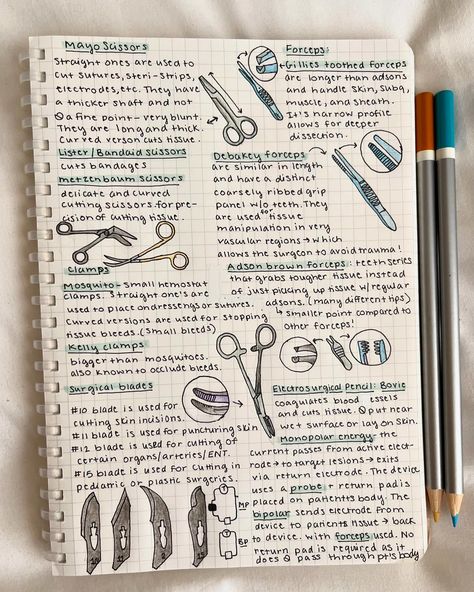 Mayo Scissors
Straight ones are used to
cut sutures, steri-strips,
electrodes, etc. They have
a thicker shaft and not
a fine point - very blunt.
They are long and thick.
Curved verson cuts tissue.
Lister/Bandaid scissors
cuts bandages
metzenbaum scissors
delicate and curved
cutting scissors for pre-
cision of cutting tissue.
Clamps
Mosquito - Small hemostat
clamps. Straight one's are
used to place on dressings or sutures.
Curved versions are used for stopping
tissue bleeds. (Small bleeds)
Kelly clamps
bigger than mosquitoes.
also known to occlude bleeds.
Surgical blades
#10 blade is used for
cutting skin incisions.
#11 blade is used for puncturing skin
#12 blade is used for cutting of
certain organs/arteries/ENT.
#15 blade is used for cutting in
pediatric or plastic surgeries.
10
11
12
15
MP
BP
Forceps:
Gillies toothed forceps
are longer than adsons
and handle skin, subq,
muscle, and sheath.
It's narrow profile
allows for deeper
dissection.
Debakey forceps
are similar in length
and have a distinct
coarsely ribbed grip
panel w/o teeth. They
are used for tissue
manipulation in very
vascular regions → which
allows the surgeon to avoid trauma!
Adson brown forceps: teeth series
that grabs tougher tissue instead
of just picking up tissue w/ regular
adsons. (many different tips)
↳ smaller point compared to
other forceps!
Electrosurgical Pencil: Bovie
coagulates blood essels
and cuts tissue. Ø put near
wet surface or lay on skin.
Monopolar energy - the
current passes from active elect-
rode → to target lesions → exits
via return electrode. The device
uses a probe + return pad is
placed on patients body. The
bipolar sends electrode from
device to patients tissue → back
to device. with forceps used. No
return pad is required as it
does Ø pass through pt's body